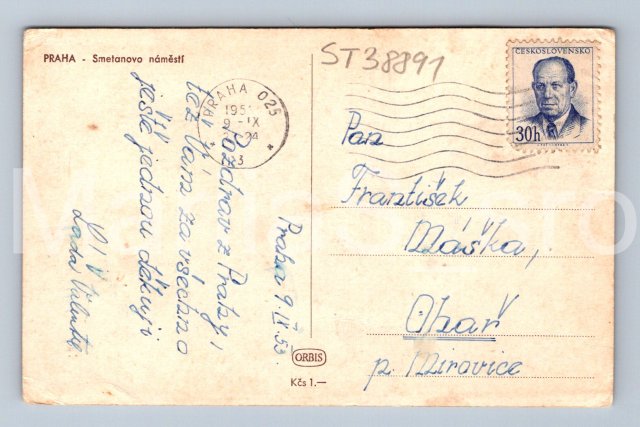 PRAHA - Smetanovo náměstí
ST38891
ČESKOSLOVENSKO
30h
PRAHA 025
9 -IX
Pozdrav z Prahy,
též Vám za všechno
ještě jednou děkuji
Praha 9. IX 53.
Pan
František
Máška,
Obař
p. Mirovice
ORBIS
Kčs 1.—